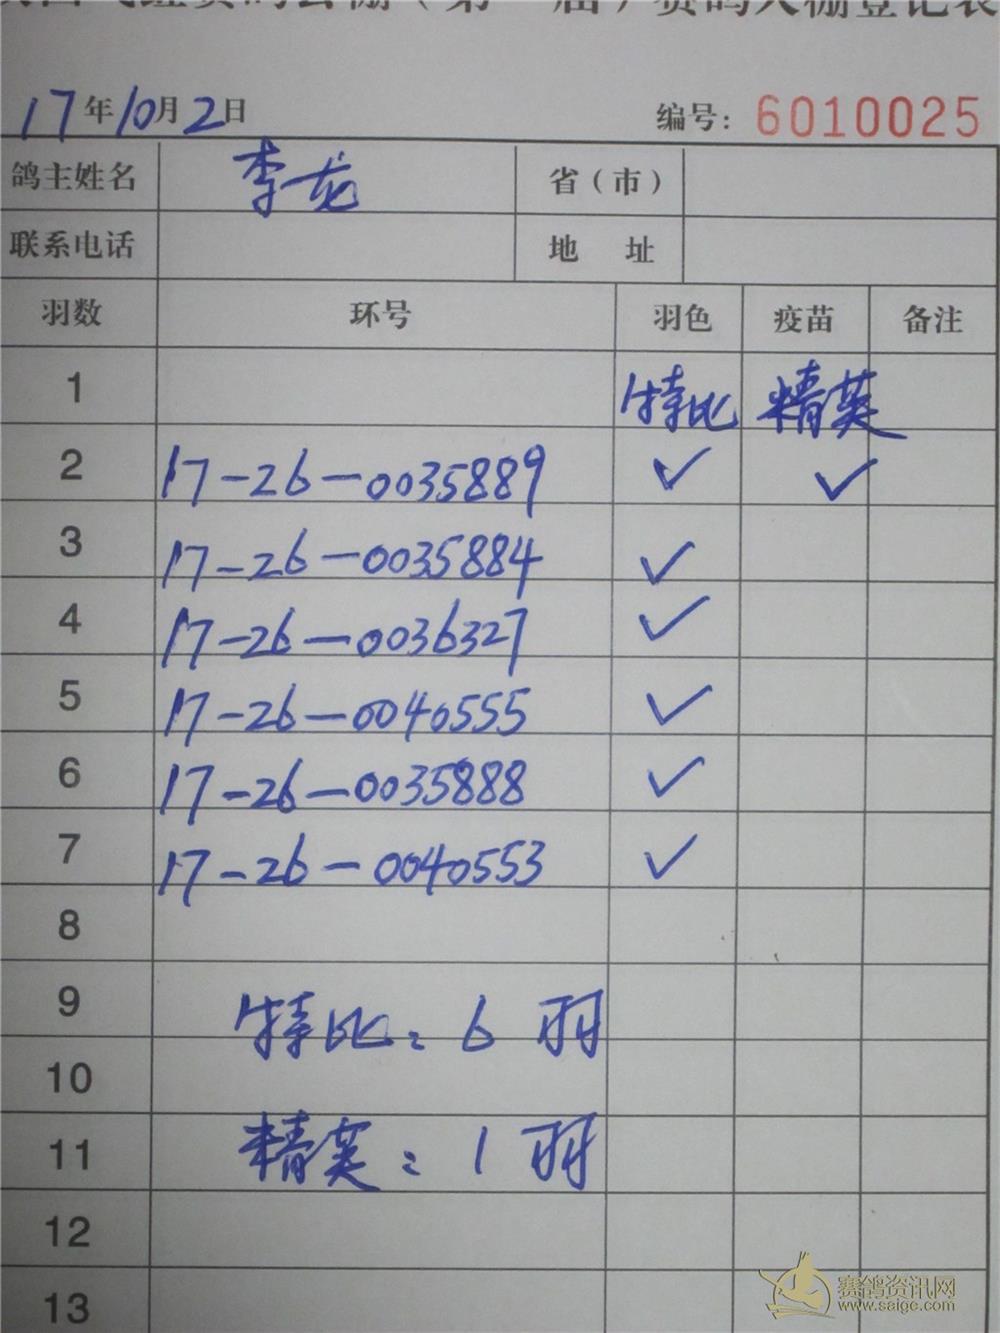 赛鸽公棚（第 届）赛鸽入棚登记表
17年10月2日 编号: 6010025
鸽主姓名 李龙 省（市）
联系电话 地 址
羽数 环号 羽色 疫苗 备注
1 特比 精英
2 17-26-0035889 ✓ ✓
3 17-26-0035884 ✓
4 17-26-0036327 ✓
5 17-26-0040555 ✓
6 17-26-0035888 ✓
7 17-26-0040553 ✓
8
9 特比: 6 羽
10
11 精英: 1 羽
12
13
赛鸽资讯网
www.saige.com